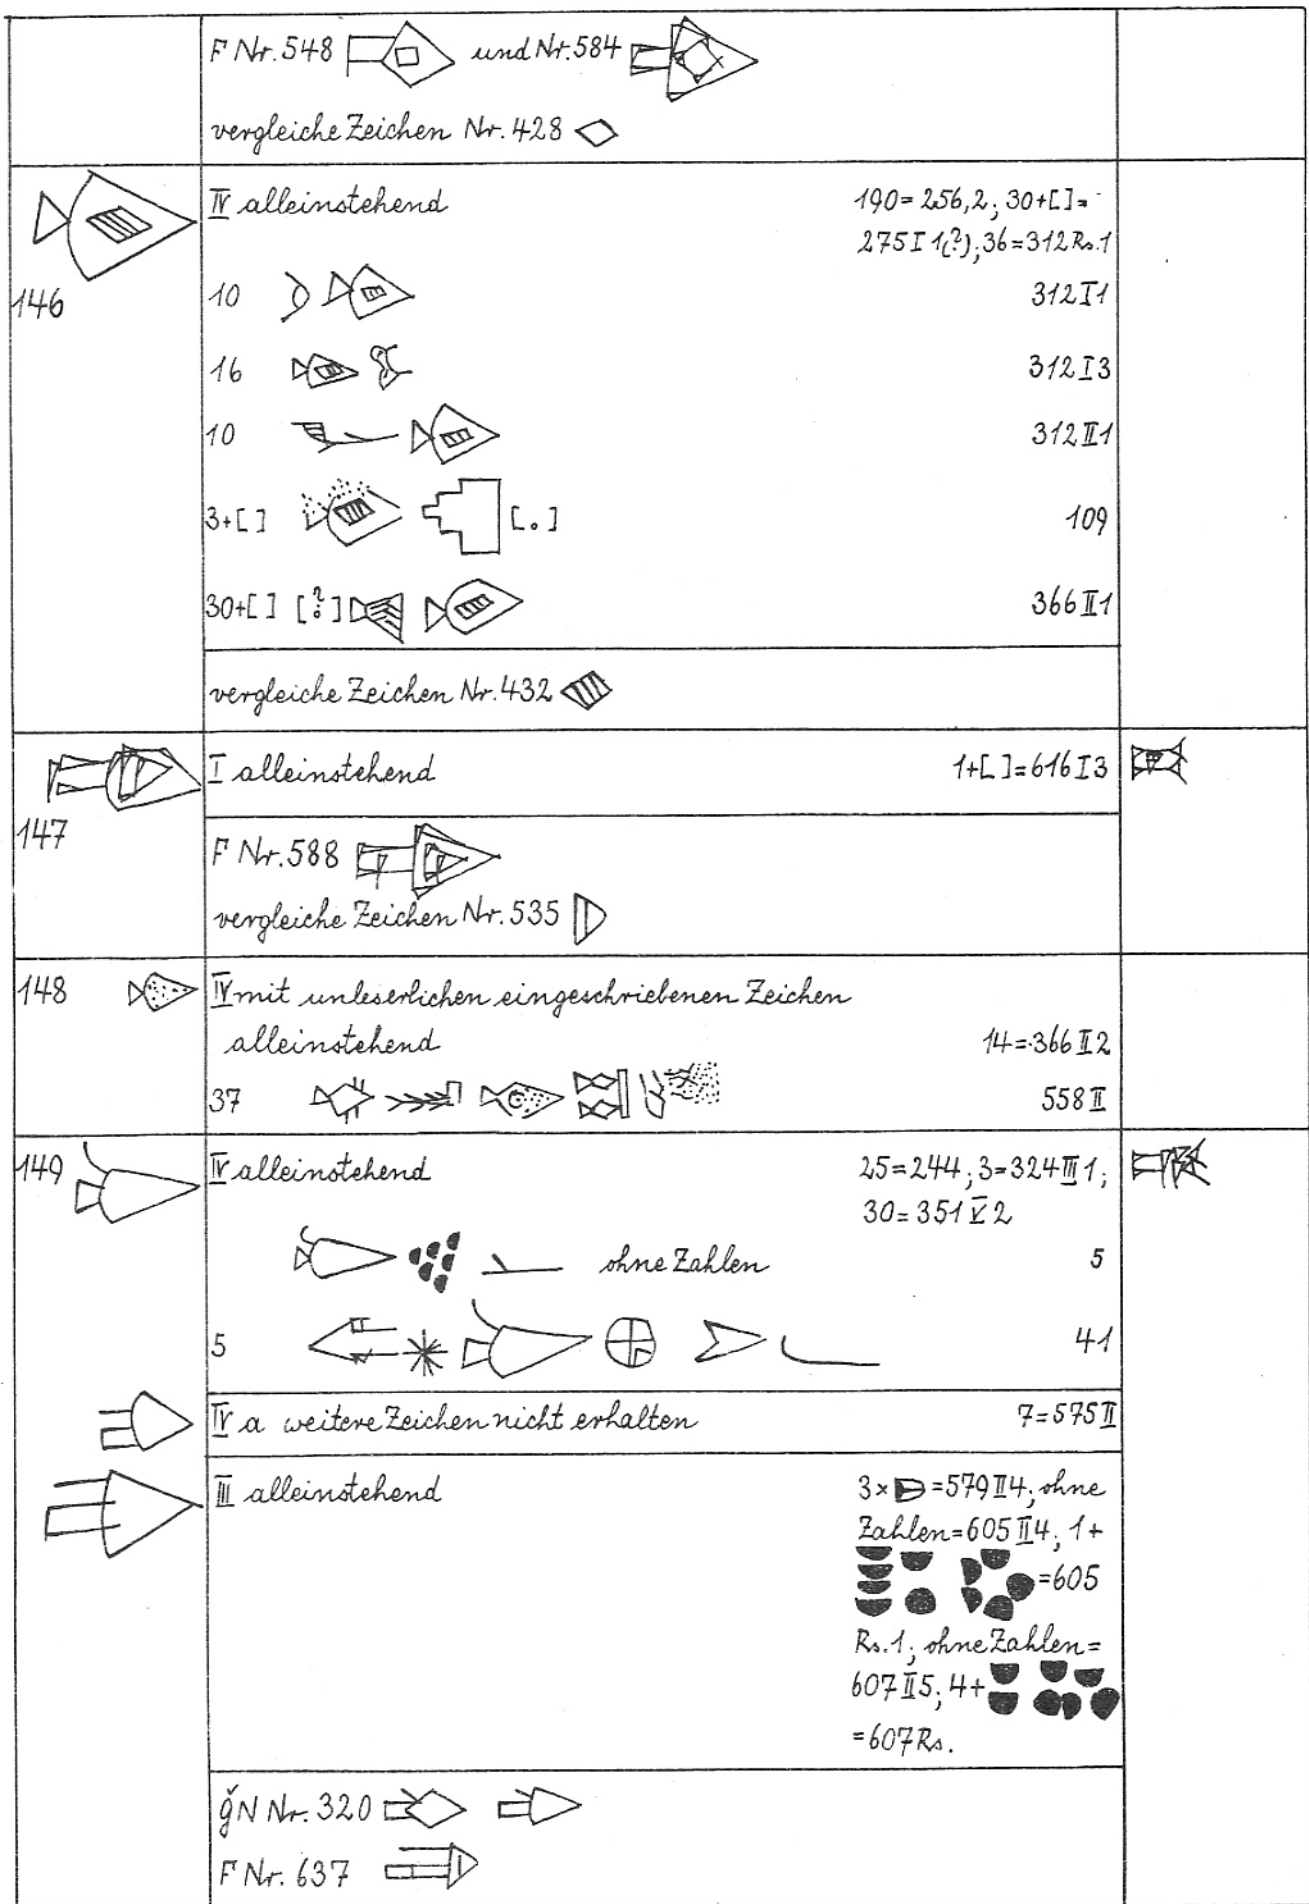 F Nr. 548 und Nr. 584
vergleiche Zeichen Nr. 428
146
IV alleinstehend 190=256,2; 30+[ ]=
275 I 1(?); 36=312 Rs. 1
10 312 I 1
16 312 I 3
10 312 II 1
3+[ ] [.] 109
30+[ ] [?] 366 II 1
vergleiche Zeichen Nr. 432
147
I alleinstehend 1+[ ]=616 I 3
F Nr. 588
vergleiche Zeichen Nr. 535
148 IV mit unleserlichen eingeschriebenen Zeichen
alleinstehend 14=366 II 2
37 558 II
149 IV alleinstehend 25=244; 3=324 III 1;
30=351 V 2
ohne Zahlen 5
5 41
IV a weitere Zeichen nicht erhalten 7=575 II
III alleinstehend 3× =579 II 4; ohne
Zahlen=605 II 4; 1+
=605
Rs. 1; ohne Zahlen=
607 II 5; 4+
=607 Rs.
ǧN Nr. 320
F Nr. 637